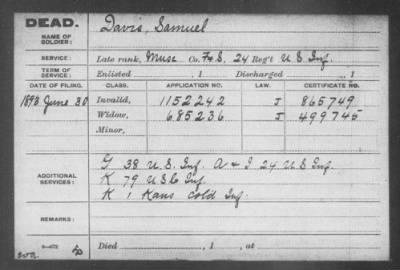 DEAD.
NAME OF SOLDIER:
Davis, Samuel
SERVICE:
Late rank, Musc Co. F&S, 24 Reg't U S Inf.
TERM OF SERVICE:
Enlisted , 1 Discharged , 1
DATE OF FILING. CLASS. APPLICATION NO. LAW. CERTIFICATE NO.
1893 June 30 Invalid, 1152242 J 865749
Widow, 685236 J 499745
Minor,
ADDITIONAL SERVICES:
G 38 U.S. Inf. A & I 24 U S Inf.
K 79 U S C Inf.
K 1 Kans Cold Inf.
REMARKS:
Died , 1 , at